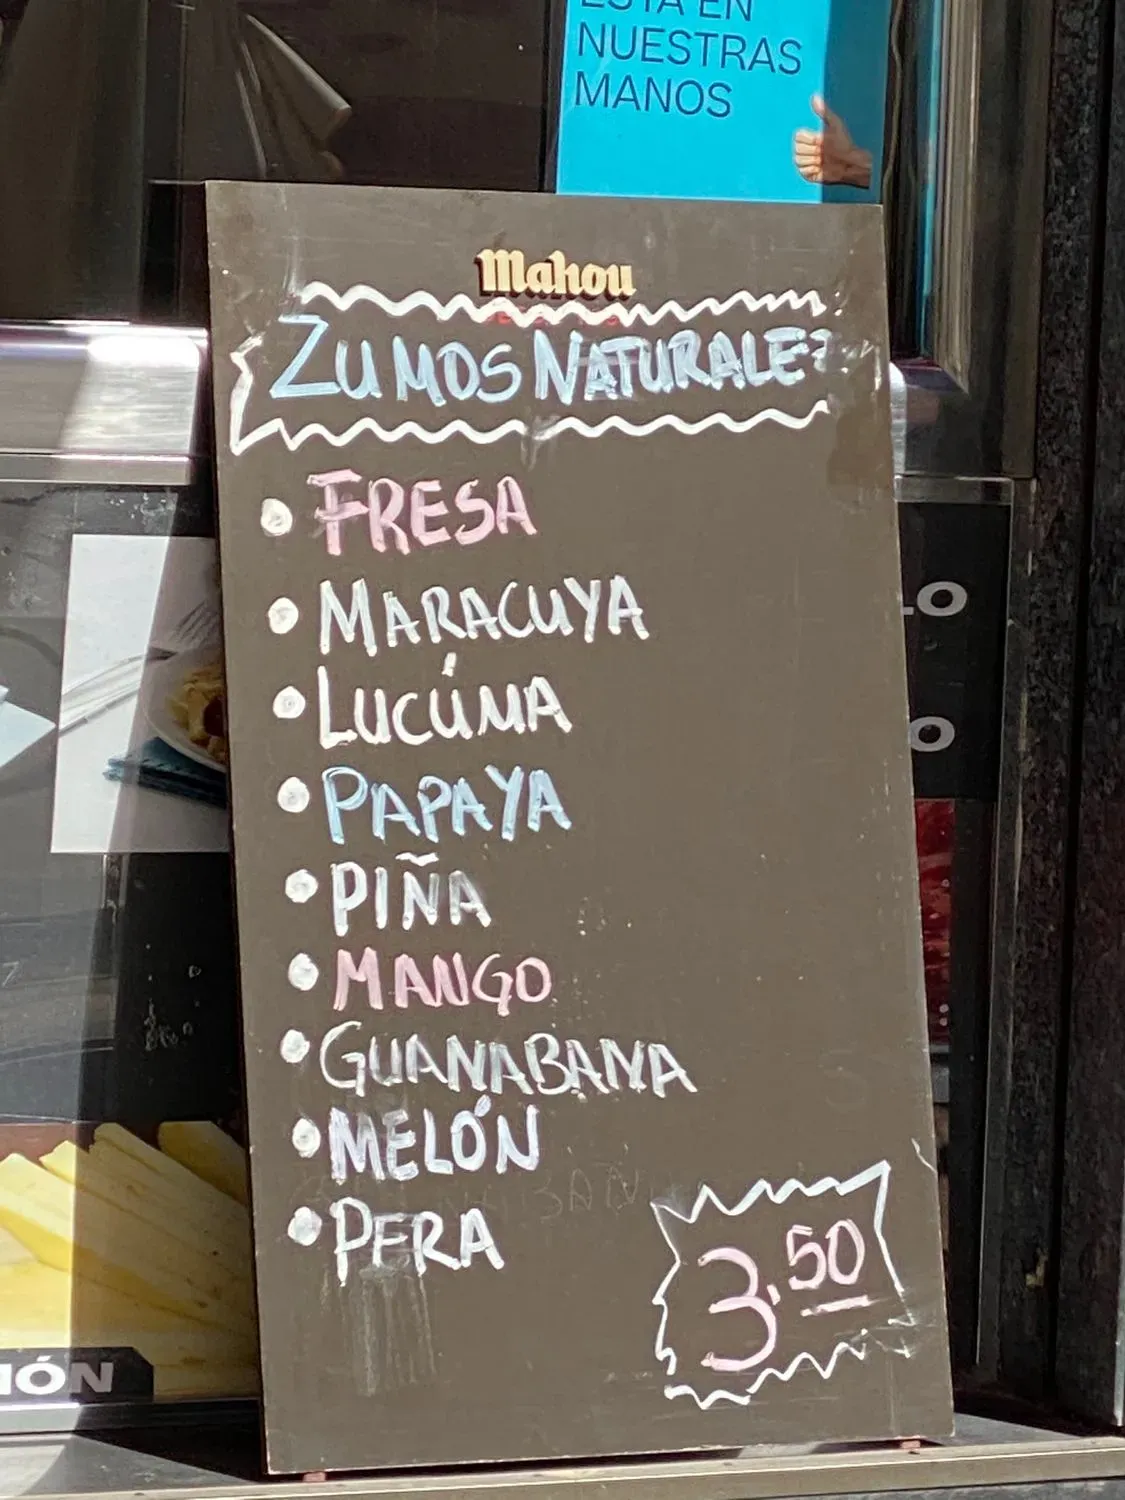 ESTÁ EN
NUESTRAS
MANOS
Mahou
ZUMOS NATURALES
• FRESA
• MARACUYA
• LUCÚMA
• PAPAYA
• PIÑA
• MANGO
• GUANABANA
• MELÓN
• PERA
3,50